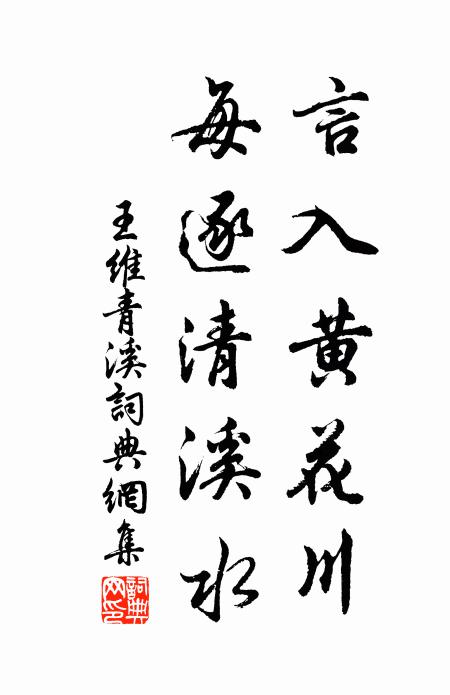 言入黄花川
每逐清溪水
王維青溪詞典網集
詞典網印